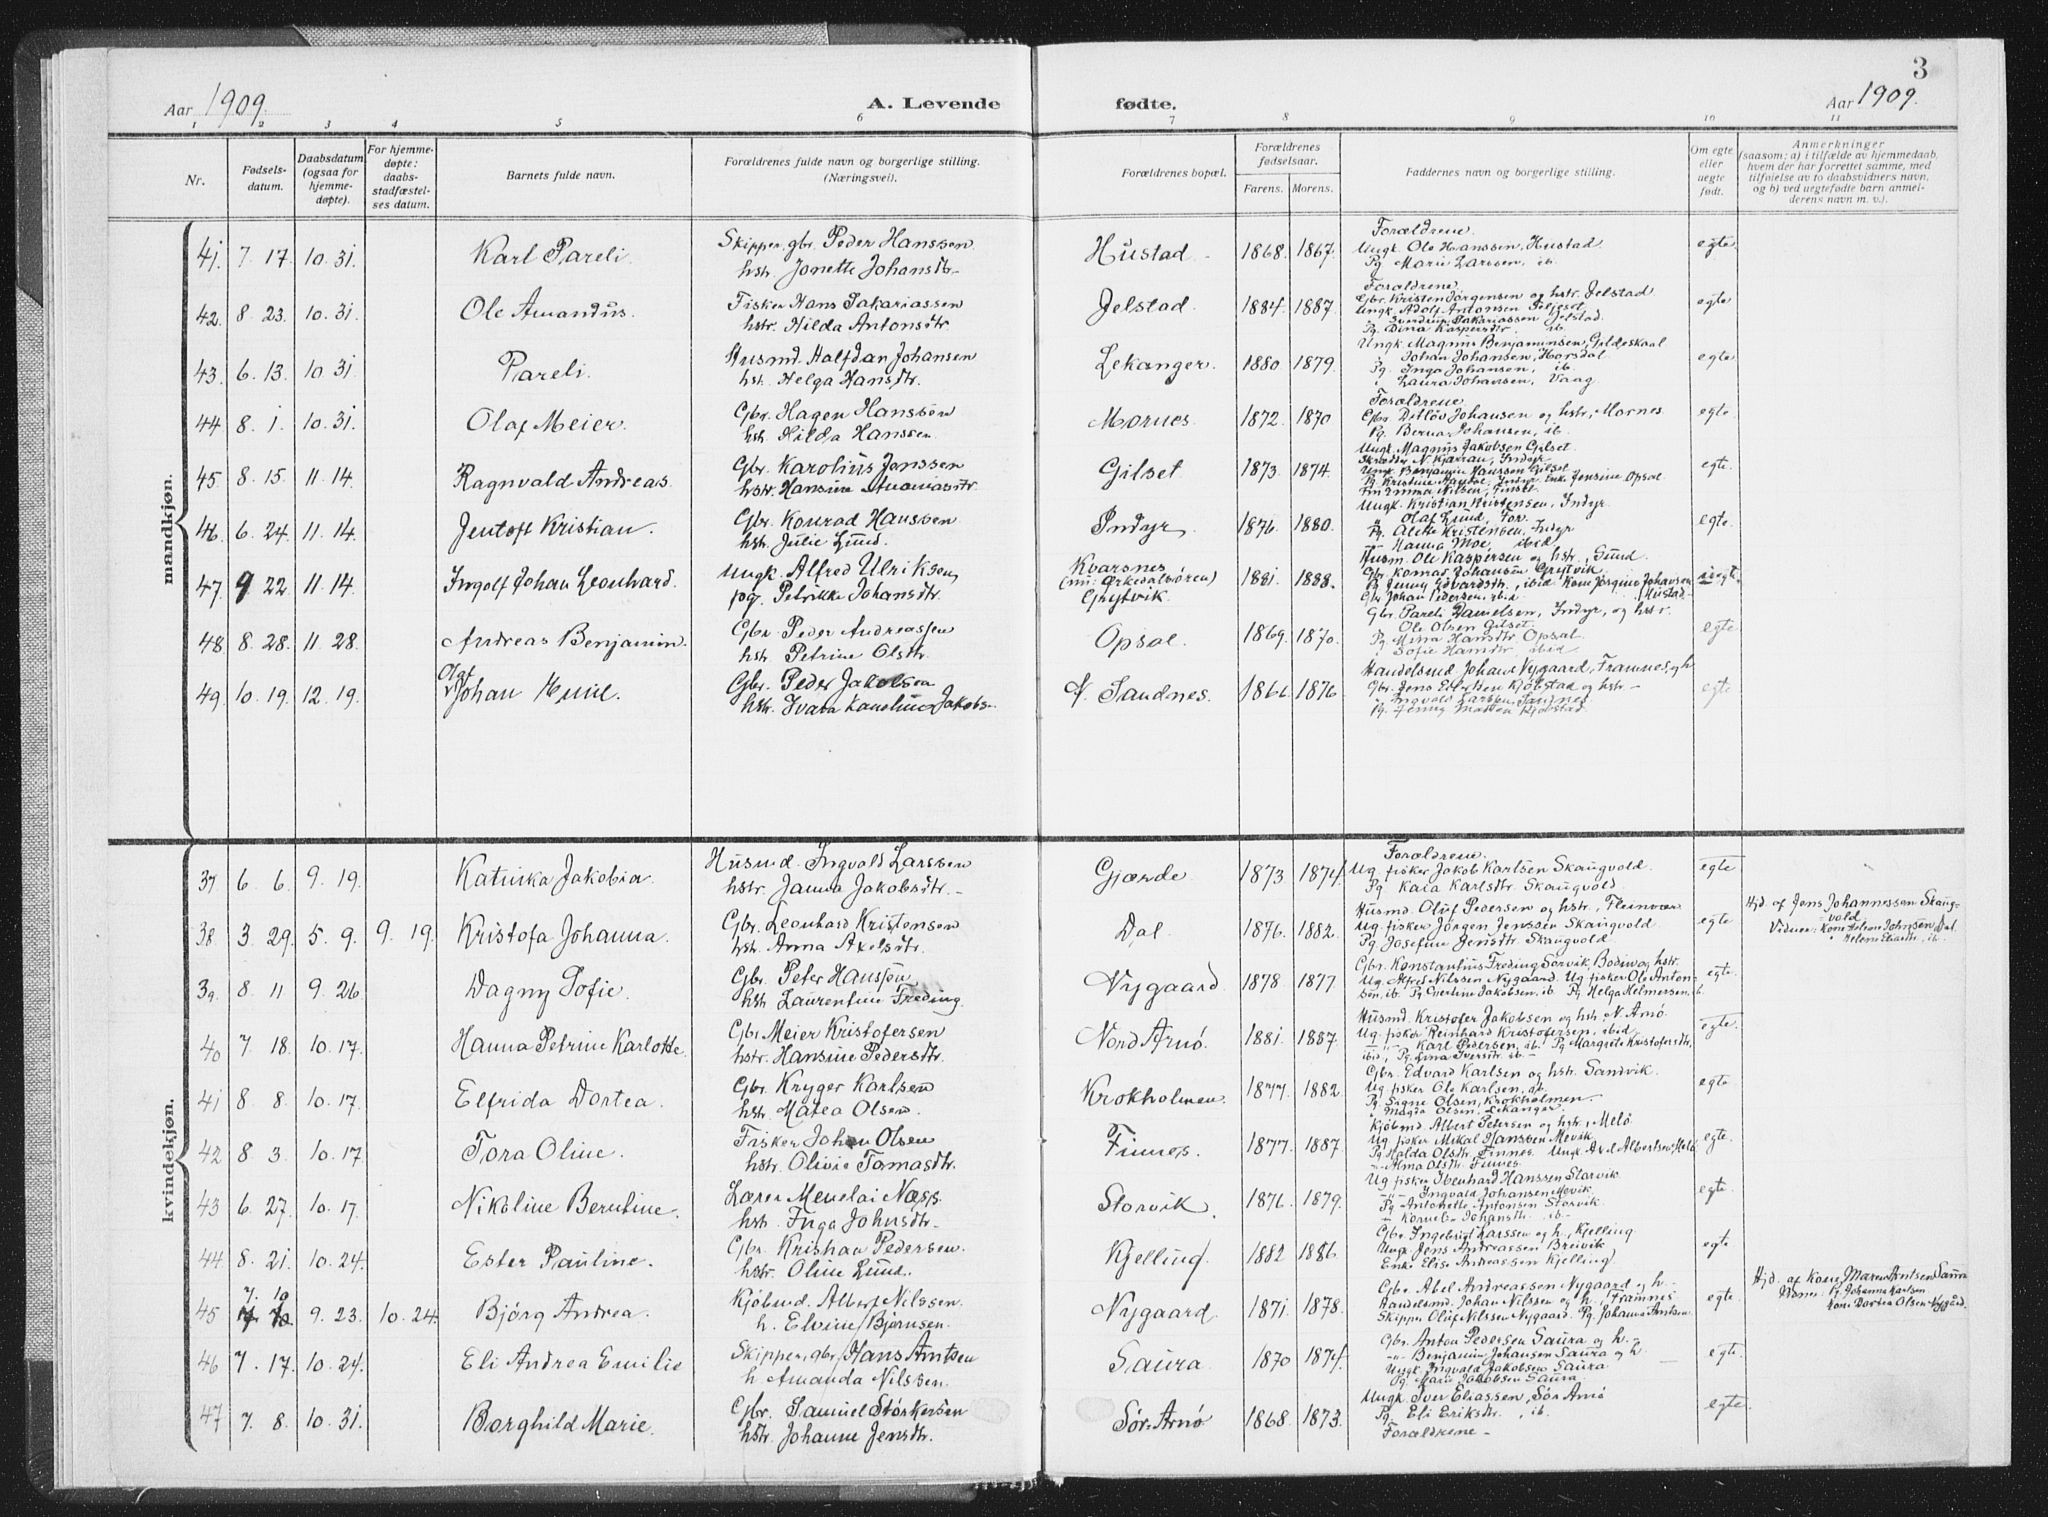 3
Aar 1909.
A. Levende fødte.
Aar 1909.
1 2 3 4 5 6 7 8 9 10 11
Nr.
Fødsels-
datum.
Daabsdatum
(ogsaa for
hjemme-
døpte).
For hjemme-
døpte:
daabs-
stadfæstel-
ses datum.
Barnets fulde navn.
Forældrenes fulde navn og borgerlige stilling.
(Næringsvei).
Forældrenes bopæl.
Forældrenes
fødselsaar.
Farens. Morens.
Faddernes navn og borgerlige stilling.
Om egte
eller
uegte
født.
Anmerkninger
(saasom: a) i tilfælde av hjemmedaab,
hvem der har forrettet samme, med
tilføielse av to daabsvidners navn,
og b) ved uegtefødte barn anmel-
derens navn m. v.).
mandkjøn.
41 7. 17. 10. 31. Karl Pareli.
Skipper, gbr. Peder Hanssen
hstr. Jonette Johansdtr.
Hustad 1868. 1867.
Forældrene.
Ungk. Ole Hanssen, Hustad
Pg. Marie Larssen, ib.
egte
42. 8. 23. 10. 31. Ole Amandus.
Fisker Hans Sakariassen
hstr. Hilda Antonsdtr
Jelstad. 1884. 1887.
Forældrene.
Gbr. Kristen Jørgensen og hstr. Jelstad
Ungk. Adolf Antonsen
Sakariassen Jelstad.
Pg. Dina Kaspersdtr. ib.
egte
43. 6. 13. 10. 31. Pareli.
Husmd. Halfdan Johansen
hst. Helga Hansdtr.
Lekanger. 1880 1879.
Ungk. Magnus Benjaminsen, Gildeskaal
Johan Johansen, Horsdal
Pg. Inga Johansen, ib.
Laura Johansen, Vaag.
egte
44 8. 1. 10. 31. Olaf Meier.
Gbr. Hagen Hanssen
hst. Hilda Hanssen
Mornes. 1872. 1870
Forældrene.
Gbr. Ditløv Johansen og hstr, Mornes
Pg. Berna Johansen, ib.
egte.
45. 8. 15. 11. 14. Ragnvald Andreas.
Gbr. Karolius Jenssen
hstr. Hansine Ananiasdtr.
Gilset 1873. 1874.
Ungk. Magnus Jakobsen Gilset.
Ungk. Benjamin Hanssen Gilset
Enke Jensine Opsal
Emma Nilsen
egte.
46. 6. 24. 11. 14. Jentoft Kristian.
Gbr. Konrad Hanssen
hst. Julie Lund.
Indyr 1876. 1880.
Ungk. Kristian Kristensen, Indyr.
Olaf Lund,
Pg. Alette Kristensen, Indyr
Hanna Moe, ibid
egte.
47. 9 22. 11. 14. Ingolf Johan Leonhard.
Ungk. Alfred Ulriksen,
pg. Petrikke Johansdtr.
Kvarsnes
(nu: Orkedalsøren)
Grytvik. 1881. 1888.
Husm. Ole Kaspersen og hstr, Sund.
Gbr Konrad Johansen Grytvik.
Pg Jenny Edvardsdtr., ibid Kone Jørgine Johansen
Gbr Johan Pedersen, ibid (Hustad
uegte.
48 8. 28. 11. 28. Andreas Benjamin.
Gbr. Peder Andreassen
hstr. Petrine Olsdtr.
Opsal. 1869. 1870.
Gbr. Pareli Danielsen, Indyr, og hstr.
Ole Olsen Gilset.
Pg. Mina Hansdtr. Opsal.
Sofie Hansdtr. ibid
egte.
49. 10. 19. 12. 19. Olaf
Johan
Gbr. Peder Jakobsen
hstr. Ivara Karoline Jakobs-
N. Sandnes. 1866 1876.
Handelsmd. Johan Nygaard, Framnes, og h
Gbr. Jens Evertsen Kjøbstad og hstr -
Ingvald Larssen, Sandnes
Pg. Jenny Kjøbstad.
egte.
kvindekjøn.
37. 6. 6. 9. 19. Katinka Jakobia.
Husmd. Ingvald Larssen
hstr. Janna Jakobsdtr.
Gjærde. 1873. 1874.
Forældrene.
Ug. fisker Jakob Karlsen Skaugvold.
Pg. Kaia Karlsdtr. Skaugvold.
egte
38. 3. 29. 5. 9. 9. 19. Kristofa Johanna.
Gbr. Leonhard Kristensen
hst. Anna Axelsdtr.
Dal. 1876. 1882.
Husmd. Oluf Pedersen og hstr, Fleinvær
Ug fisker Jørgen Jenssen Skaugvold
Pg. Josefine Jensdtr. Skaugvold
egte
Hjd. af Jens Johannessen Skaug-
vold.
Vidner: Kone Johnsen, Dal.
Helene ib.
39. 8. 11 9. 26. Dagny Sofie.
Gbr. Peter Hanssen
hstr Laurentine Freding.
Nygaard. 1878. 1877.
Gbr. Konstantius Freding Sørvik, Bodin og hstr.
Ug. Alfred Nilssen Nygaard. Ug fisker Ole Anton-
sen, ib. Pg Evertine Jakobsen, ib. Pg. Helga Helmersen, ib.
egte.
40 7. 18. 10. 17. Hanna Petrine Karlotte.
Gbr Meier Kristofersen
hstr. Hansine Pedersdtr.
Nord Arnø. 1881. 1887.
Husmd. Kristofer Jakobsen og hstr N. Arnø.
Ug. fisker Reinhard Kristofersen, ibid.
Karl Pedersen, ib. Pg Margrete Kristofersdtr,
ibid, Pg. Lina Iversdtr. ib.
egte.
41 8. 8. 10. 17. Elfrida Dortea.
Gbr. Kryger Karlsen
hstr. Matea Olsen.
Krokholmen 1877. 1882.
Gbr. Edvard Karlsen og hstr. Sandvik.
Ug. fisker Ole Karlsen, ib.
Pg. Signe Olsen, Krokholmen
Magda Olsen, Lekanger.
egte.
42 8. 3. 10. 17. Tora Oline.
Fisker Johan Olsen
hstr. Olivie Tomasdtr.
Finnes. 1877. 1887.
Kjøbmd. Albert Petersen og hstr, Melø
Ug. fisker Mikal Hanssen Mevik.
Pg. Halda Olsdtr. Finnes. Ungk Axel Albertsen, Melø
Alma Olsdtr. Finnes.
egte.
43 6. 27. 10. 17. Nikoline Berntine.
Lærer Menelai Næss.
hstr. Inga Johnsdtr.
Storvik. 1876. 1879.
Ug fisker Ibenhard Hanssen Storvik.
Ingvald Johansen Mevik.
Pg. Antonette Antonsen Storvik.
Kornelia Johansdtr. ib.
egte.
44 8. 21. 10. 24. Ester Pauline.
Gbr. Kristian Pedersen.
hstr. Oline Lund.
Kjelling. 1882 1886.
Gbr Ingebrigt Larssen og h, Kjelling
Ungk. Jens Andreassen Breivik
Enke Elise Andreassen Kjelling.
egte
45 7. 10 9. 23. 10. 24. Bjørg Andrea.
Kjøbmd. Albert Nilssen.
h. Elvine Bjørnsen.
Nygaard. 1871. 1878.
Gbr. Abel Andreassen Nygaard og h.
Handelsmd. Johan Nilssen og h. Framnes
Skipper Oluf Nilssen Nygaard. Pg. Johanna Arntsen
egte.
Hjd. af Kone Maren Arntsen Saura
Vidner: Pg. Johanna Karlsen
Kone Dortea Olsen Nygård.
46 7. 17. 10. 24. Eli Andrea Emilie
Skipper, gbr. Hans Arntsen
h. Amanda Nilssen.
Saura. 1870 1874.
Gbr. Anton Pedersen Saura og h.
Benjamin Johansen Saura og h.
Ungk Ingvald Jakobsen Saura.
Pg. Marie Jakobsen Saura.
egte.
47 7. 8. 10. 31. Borghild Marie.
Gbr. Samuel Størkersen
hstr. Johanne Jensdtr.
Sør-Arnø 1868. 1873.
Ungk. Iver Eliassen, Sør Arnø
Pg. Eli Eriksdtr., ib.
Forældrene
egte.